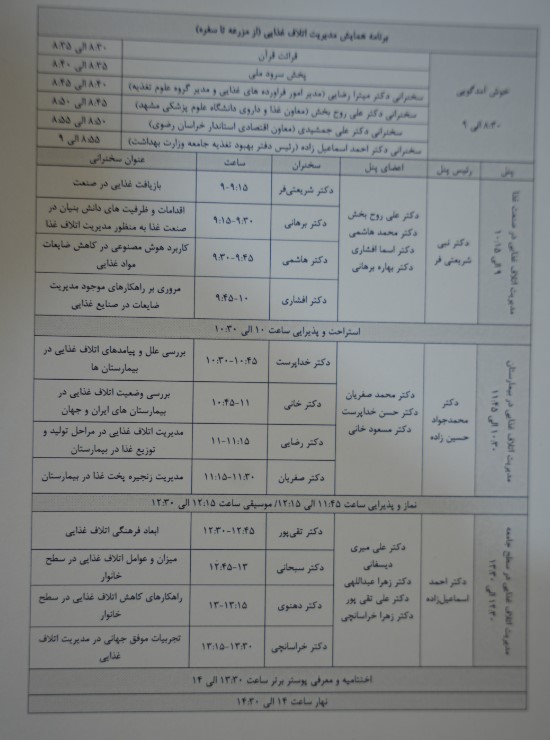 برنامه همایش مدیریت اتلاف غذایی (از مزرعه تا سفره)
خوش آمدگویی
۸:۳۰ الی ۹
قرائت قرآن
۸:۳۰ الی ۸:۳۵
پخش سرود ملی
۸:۳۵ الی ۸:۴۰
سخنرانی دکتر میترا رضایی (مدیر امور فراورده های غذایی و مدیر گروه علوم تغذیه)
۸:۴۰ الی ۸:۴۵
سخنرانی دکتر علی روح بخش (معاون غذا و داروی دانشگاه علوم پزشکی مشهد)
۸:۴۵ الی ۸:۵۰
سخنرانی دکتر علی جمشیدی (معاون اقتصادی استاندار خراسان رضوی)
۸:۵۰ الی ۸:۵۵
سخنرانی دکتر احمد اسماعیل زاده (رئیس دفتر بهبود تغذیه جامعه وزارت بهداشت)
۸:۵۵ الی ۹
پنل
رئیس پنل
اعضای پنل
سخنران
ساعت
عنوان سخنرانی
مدیریت اتلاف غذایی در صنعت غذا
۹ الی ۱۰:۱۵
دکتر نبی
شریعتی فر
دکتر علی روح بخش
دکتر محمد هاشمی
دکتر اسما افشاری
دکتر بهاره برهانی
دکتر شریعتی‌فر
۹-۹:۱۵
بازیافت غذایی در صنعت
دکتر برهانی
۹:۱۵-۹:۳۰
اقدامات و ظرفیت های دانش بنیان در
صنعت غذا به منظور مدیریت اتلاف غذا
دکتر هاشمی
۹:۳۰-۹:۴۵
کاربرد هوش مصنوعی در کاهش ضایعات
مواد غذایی
دکتر افشاری
۹:۴۵-۱۰
مروری بر راهکارهای موجود مدیریت
ضایعات در صنایع غذایی
استراحت و پذیرایی ساعت ۱۰ الی ۱۰:۳۰
مدیریت اتلاف غذایی در بیمارستان
۱۰:۳۰ الی ۱۱:۴۵
دکتر
محمدجواد
حسین زاده
دکتر محمد صفریان
دکتر حسن خداپرست
دکتر مسعود خانی
دکتر خداپرست
۱۰:۳۰-۱۰:۴۵
بررسی علل و پیامدهای اتلاف غذایی در
بیمارستان ها
دکتر خانی
۱۰:۴۵-۱۱
بررسی وضعیت اتلاف غذایی در
بیمارستان های ایران و جهان
دکتر رضایی
۱۱-۱۱:۱۵
مدیریت اتلاف غذایی در مراحل تولید و
توزیع غذا در بیمارستان
دکتر صفریان
۱۱:۱۵-۱۱:۳۰
مدیریت زنجیره پخت غذا در بیمارستان
نماز و پذیرایی ساعت ۱۱:۴۵ الی ۱۲:۱۵/ موسیقی ساعت ۱۲:۱۵ الی ۱۲:۳۰
مدیریت اتلاف غذایی در سطح جامعه
۱۲:۳۰ الی ۱۳:۳۰
دکتر احمد
اسماعیل‌زاده
دکتر علی میری
دیسفانی
دکتر زهرا عبداللهی
دکتر علی تقی پور
دکتر زهرا خراسانچی
دکتر تقی‌پور
۱۲:۳۰-۱۲:۴۵
ابعاد فرهنگی اتلاف غذایی
دکتر سبحانی
۱۲:۴۵-۱۳
میزان و عوامل اتلاف غذایی در سطح
خانوار
دکتر دهنوی
۱۳-۱۳:۱۵
راهکارهای کاهش اتلاف غذایی در سطح
خانوار
دکتر خراسانچی
۱۳:۱۵-۱۳:۳۰
تجربیات موفق جهانی در مدیریت اتلاف
غذایی
اختتامیه و معرفی پوستر برتر ساعت ۱۳:۳۰ الی ۱۴
نهار ساعت ۱۴ الی ۱۴:۳۰